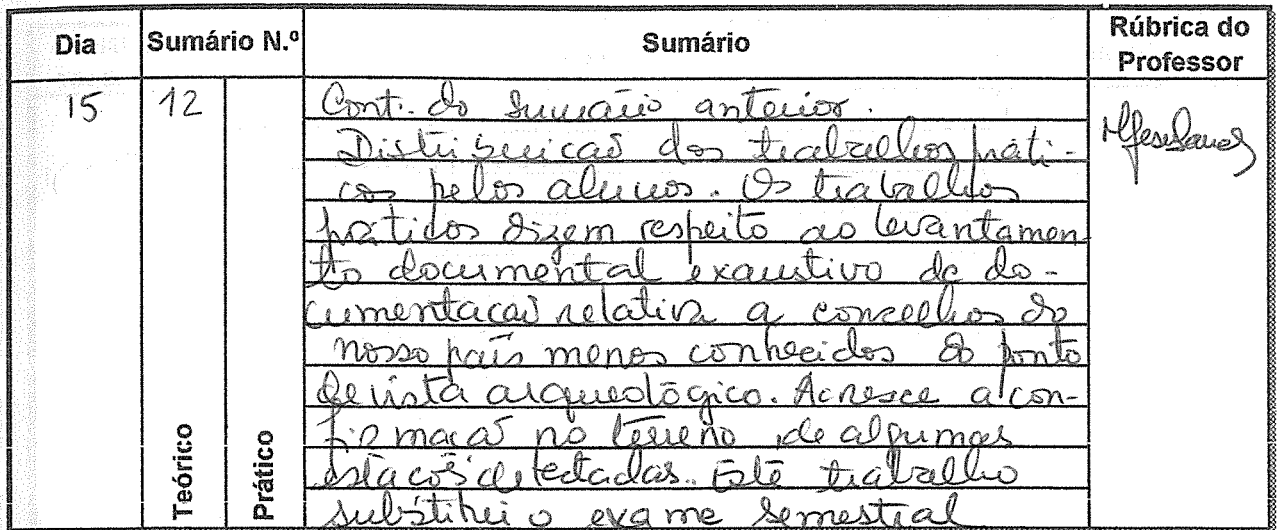 Dia Sumário N.º Sumário Rúbrica do Professor
Teórico Prático
15 12 Cont. do sumário anterior.
Distribuição dos trabalhos práti-
cos pelos alunos. Os trabalhos
práticos dizem respeito ao levantamen
to documental exaustivo de do-
cumentação relativa a concelhos do
nosso país menos conhecidos do ponto
de vista arqueológico. Acresce a con-
firmação no terreno de algumas
estações detectadas. Este trabalho
substitui o exame semestral